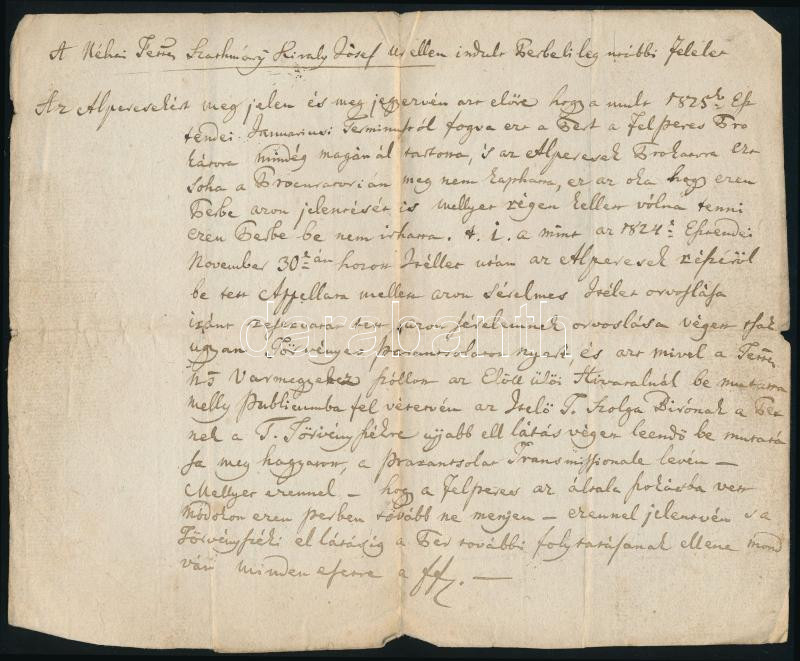 A Néhai Tettes Szathmáry Király Jósef Ur ellen indult Perbeli leg utóbbi felelet
Az Alperesekért meg jelen és meg jegyezvén azt előre hogy a mult 1825k Esz
tendei Januariusi Terminustól fogva ezt a Pert a felperes Pro
kátora mindég magánál tartotta, is az Alperesek Prokatora ezt
soha a Procuratorián meg nem kaphatta, ez az oka hogy ezen
Perbe azon jelentését is mellyet régen kellett vólna tenni
ezen Perbe be nem irhatta. t. i. a mint az 1824k Esztendei
November 30kán hozott Itéllet után az Alperesek részéről
be tett Appellata mellett azon sérelmes Itélet orvoslása
iránt azon sérelemnek orvoslása végett tsak
ugyan Törvényes parantsolatot nyert, és azt mivel a Tettes
Ns Varmegyéhez szóllott az Előll ülői Hivatalnál be mutatta
melly Publicumba fel vétetvén az Itélő T. Szolga Birónak a Per
nek a T. Törvény székre ujjabb ell látás végett leendő be mutatá
sa meg hagyatott, a parantsolat Transmissionale levén —
Mellyet ezennel — hogy a felperes az általa szokásba vett
módokon ezen perben tovább ne menjen — ezennel jelentvén is a
Törvényszéki el látásig a Per további folytatásának ellene mond
ván minden esetre a ff. —
darabanth